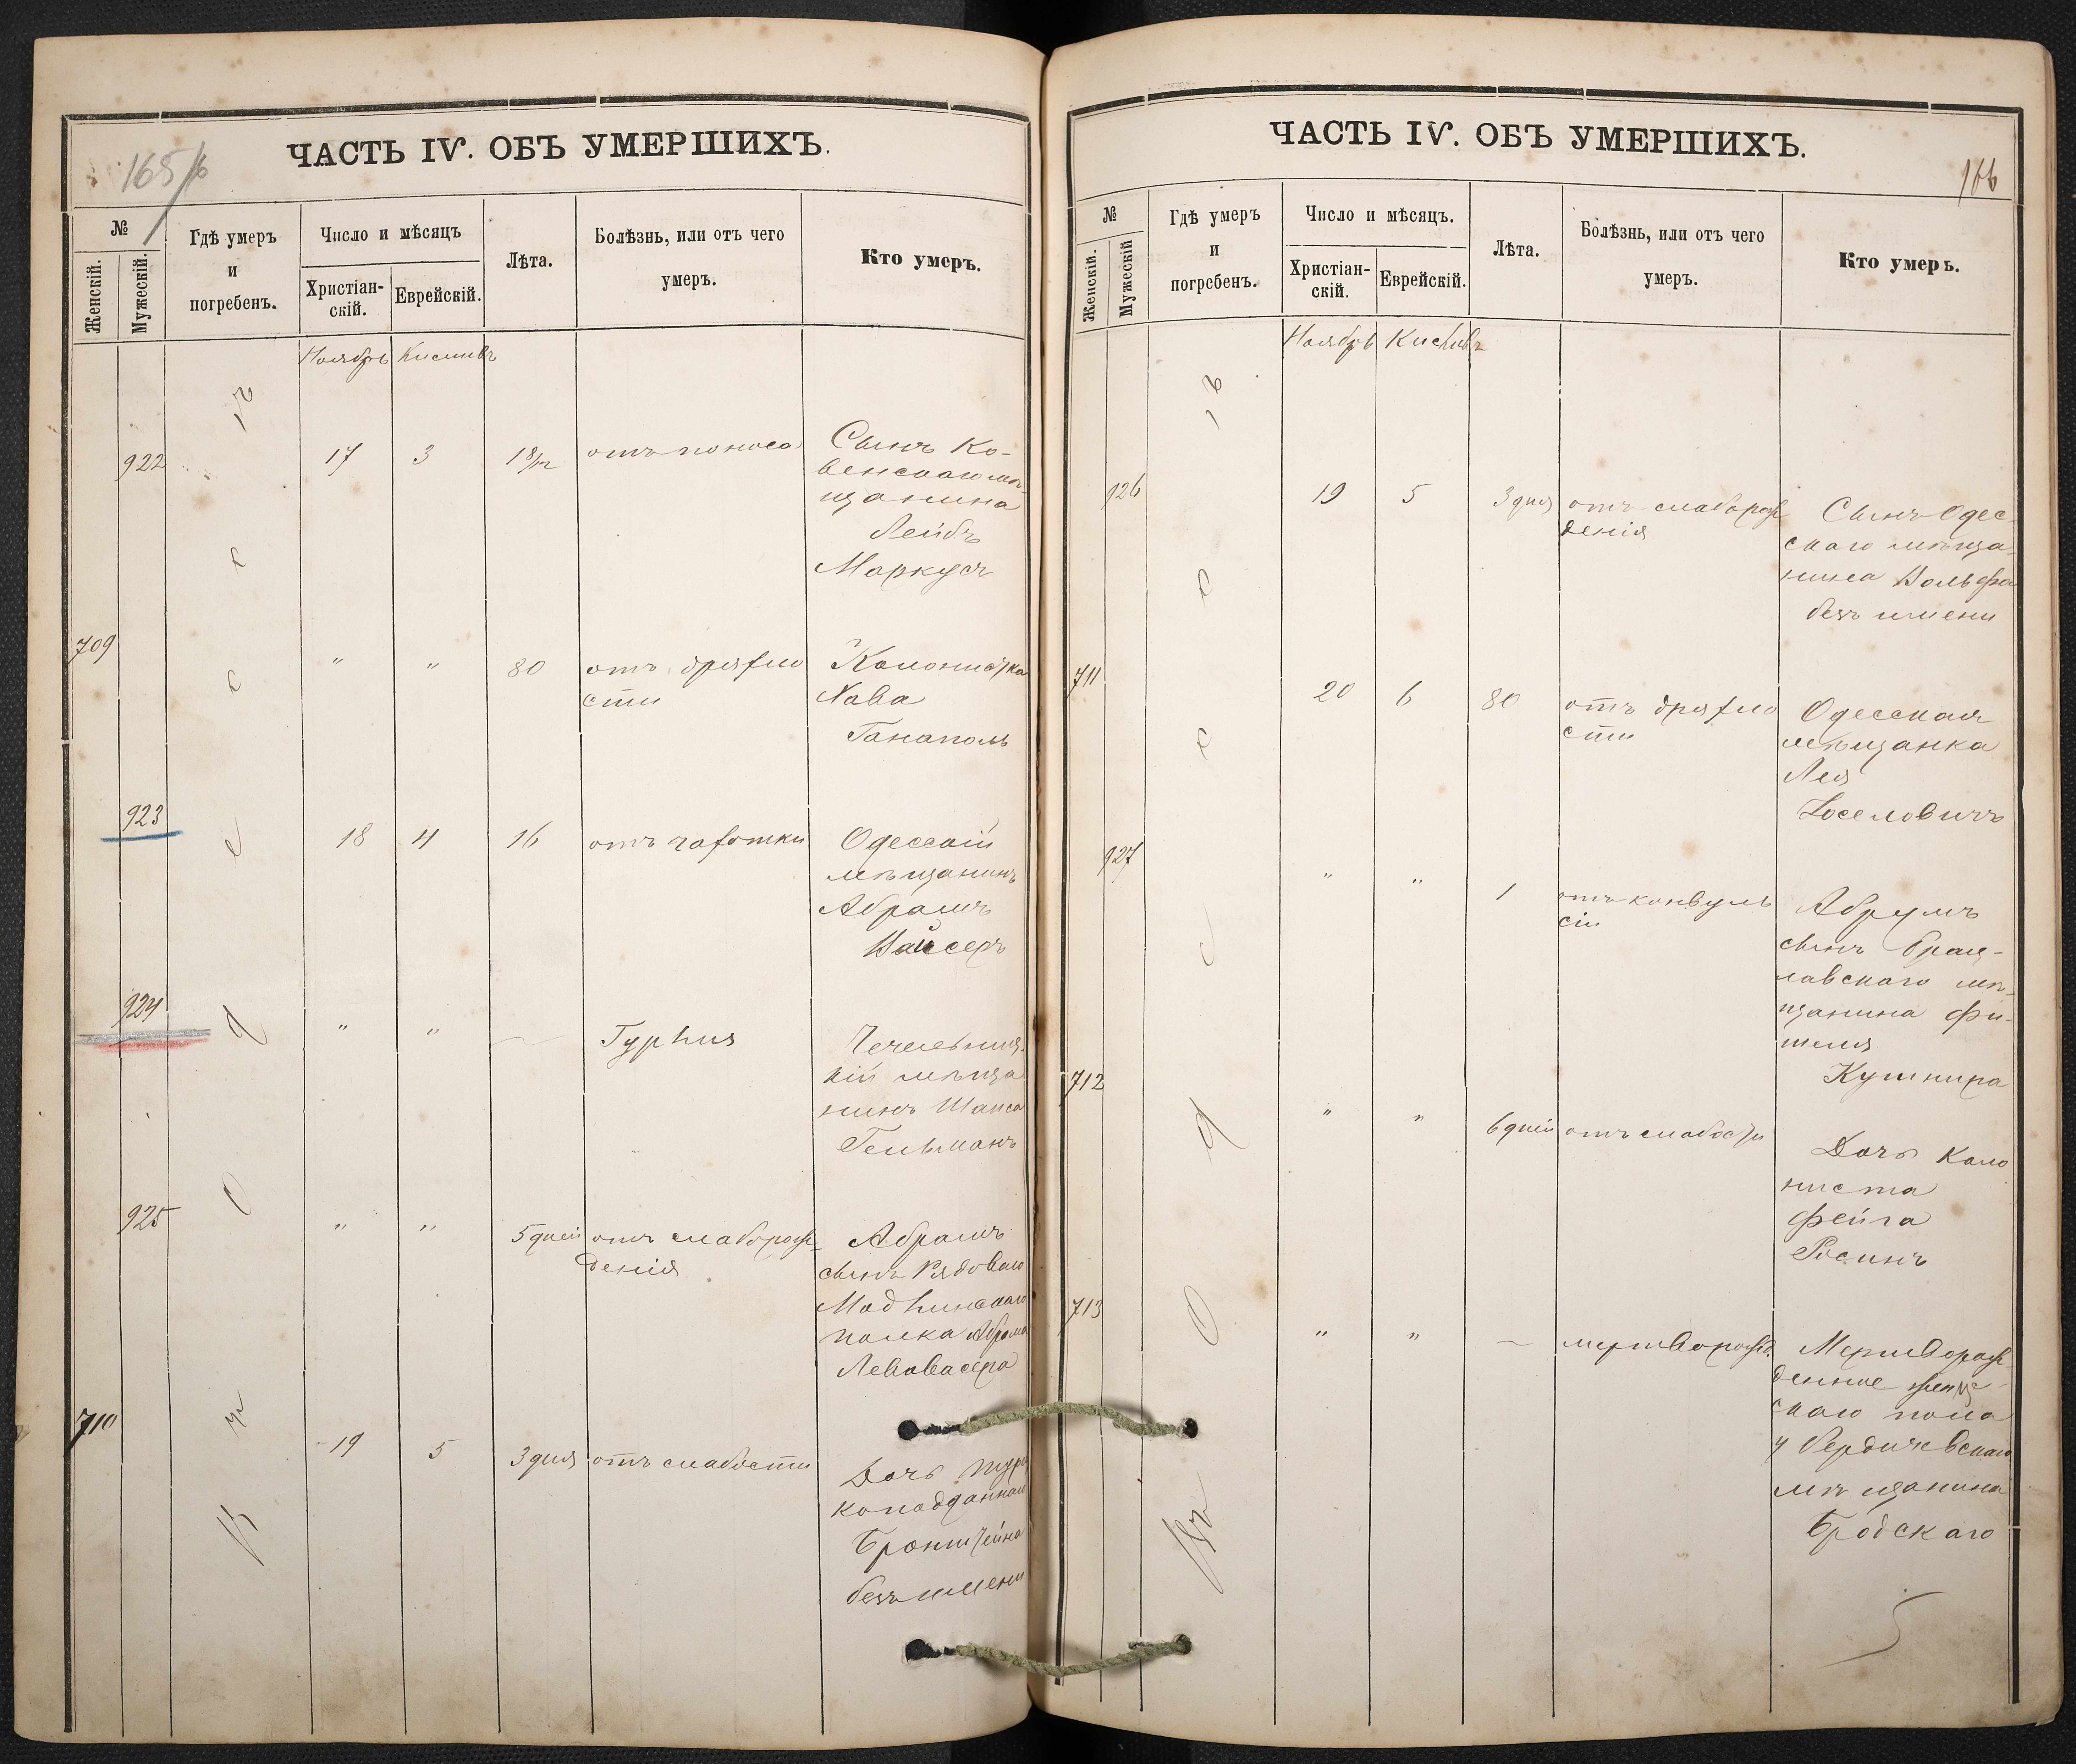 165/6
ЧАСТЬ IV. ОБЪ УМЕРШИХЪ.
№
Женскій.
Мужескій.
Гдѣ умеръ
и
погребенъ.
Число и мѣсяцъ
Христіан-
скій.
Еврейскій.
Лѣта.
Болѣзнь, или отъ чего
умеръ.
Кто умеръ.
Ноябрь Кисливъ
Въ Одессѣ
922 17 3 1 8/12 отъ поноса Сынъ Ко-
венскаго мѣ-
щанина
Лейбъ
Маркусъ
709 " " 80 отъ дряхло
сти
Колонистка
Хава
Ганаполь
923 18 4 16 отъ чахотки Одесскій
мѣщанинъ
Абрамъ
Вайсеръ
924 " " — Typhus Чечельниц-
кій мѣща
нинъ Шапса
Гельманъ
925 " " 5 дней отъ слаборож-
денія
Абрамъ
сынъ Рядоваго
Модлинскаго
полка Абрама
710 19 5 3 дня отъ слабости Дочь тур
коподданнаго
Бронштейна
безъ имени
ЧАСТЬ IV. ОБЪ УМЕРШИХЪ.
166
№
Женскій.
Мужескій
Гдѣ умеръ
и
погребенъ.
Число и мѣсяцъ.
Христіан-
скій.
Еврейскій.
Лѣта.
Болѣзнь, или отъ чего
умеръ.
Кто умеръ.
Ноябрь Кисливъ
Въ Одессѣ
926 19 5 3 дня отъ слаборож
денія
Сынъ Одес
скаго мѣща
нина Вольфа
безъ имени
711 20 6 80 отъ дряхло
сти
Одесская
мѣщанка
Лея
Іоселовичъ
927 " " 1 отъ конвуль
сіи
Абрумъ
сынъ Брац-
лавскаго мѣ-
щанина Фи-
шеля
Кушнира
712 " " 6 дней отъ слабости Дочь коло
ниста
Фейга
Росинъ
713 " " — мертворожд. Мертворож-
денное женс-
скаго пола
у Бердичевскаго
мѣщанина
Бродскаго